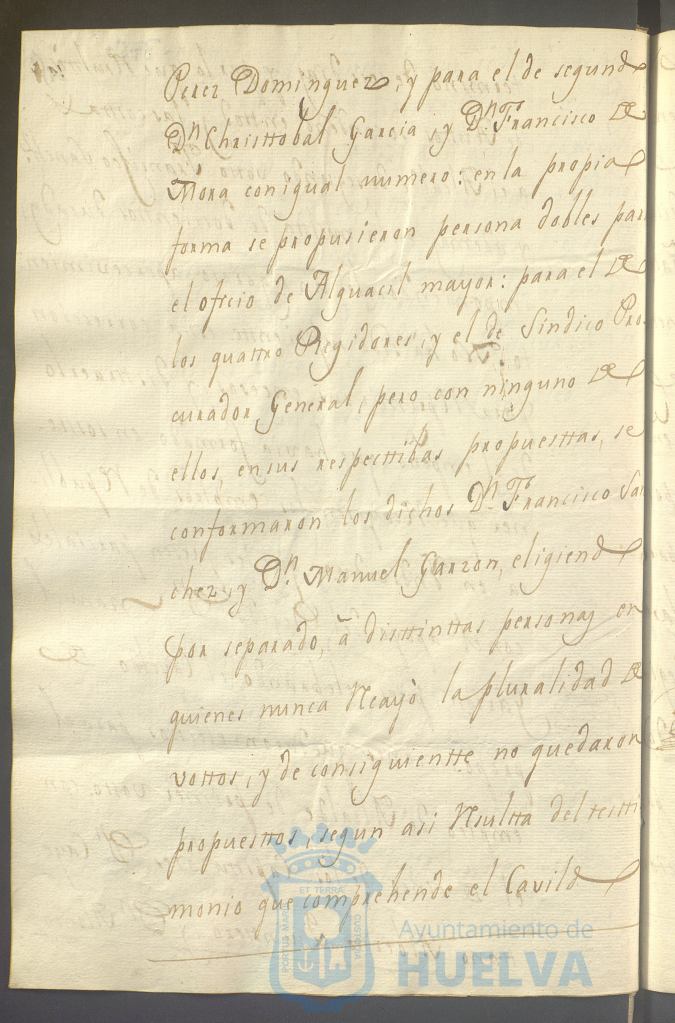 Perez Dominguez, y para el de segundo
Dn. Christtobal Garcia y Dn. Franco. Francisco de
Mora con igual numero: en la propia
forma se propusieron persona dobles para
el ofício de Alguacil mayor: para el de
los quattro Regidores, y el de Sindico Pro-
curador General, pero con ninguno de
ellos, en sus respecttibas propuesttas, se
conformaron los dichos Dn. Francisco San
chez, y Dn. Manuel Garzon, eligiendo
por separado, â disttinttas personas en
quienes nunca Recayò la pluralidad de
vottos, y de consiguientte no quedaron
propuesttos, segun asi Resultta del testti
monio que comprehende el Cavildo
PORTUS MARIS ET TERRAE CUSTODIA
Ayuntamiento de
HUELVA